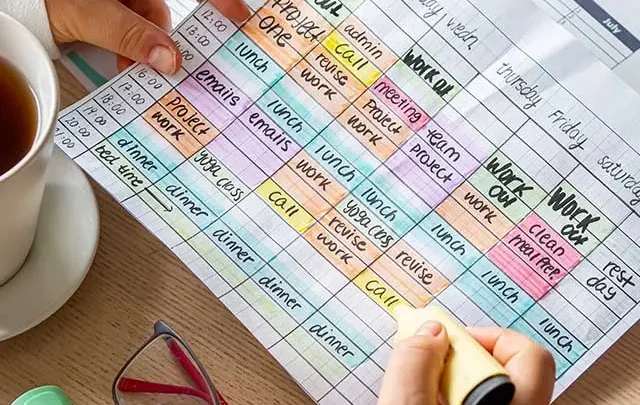 July
PROJECT
one
call
admin
WORK OU
day
wedn
thursday
Friday
saturday
12:00
13:00
lunch
revise
work
meeting
PROJECT
work
team
PROJECT
WORK
out
WORK
out
emails
lunch
16:00
17:00
18:00
19:00
20:00
21:00
PROJECT
work
emails
lunch
work
clean
mealPrep
rest
day
dinner
yoga class
work
lunch
yoga class
lunch
bed time
dinner
call
revise
work
revise
lunch
dinner
call
lunch
dinner
dinner